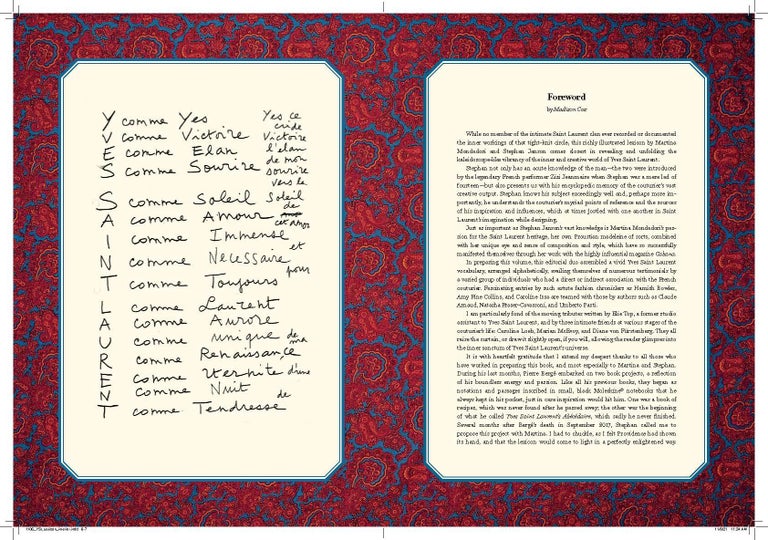 Y comme Yes
V comme Victoire
E comme Elan
S comme Sourire
S comme Soleil
A comme Amour
I comme Immense
N comme Nécessaire
T comme Toujours
L comme Laurent
A comme Aurore
U comme unique
R comme Renaissance
E comme
N comme Nuit
T comme Tendresse
Yes ce
cri de
Victoire
l'elan
de mon
sourire
vers le
Soleil
de
cet amour
et
pour
de ma
d'une
de
Foreword
by Madison Cox
While no member of the intimate Saint Laurent clan ever recorded or documented
the inner workings of that tight-knit circle, this richly illustrated lexicon by Martina
Mondadori and Stephan Janson comes closest in revealing and unfolding the
kaleidoscope-like vibrancy of the inner and creative world of Yves Saint Laurent.
Stephan not only has an acute knowledge of the man—the two were introduced
by the legendary French performer Zizi Jeanmaire when Stephan was a mere lad of
fourteen—but also presents us with his encyclopedic memory of the couturier's vast
creative output. Stephan knows his subject exceedingly well and, perhaps more im-
portantly, he understands the couturier's myriad points of reference and the sources
of his inspiration and influences, which at times jostled with one another in Saint
Laurent's imagination while designing.
Just as important as Stephan Janson's vast knowledge is Martina Mondadori's pas-
sion for the Saint Laurent heritage, her own Proustian madeleine of sorts, combined
with her unique eye and sense of composition and style, which have so successfully
manifested themselves through her work with the highly influential magazine Cabana.
In preparing this volume, this editorial duo assembled a vivid Yves Saint Laurent
vocabulary, arranged alphabetically, availing themselves of numerous testimonials by
a varied group of individuals who had a direct or indirect association with the French
couturier. Fascinating entries by such astute fashion chroniclers as Hamish Bowles,
Amy Fine Collins, and Caroline Issa are teamed with those by authors such as Claude
Arnaud, Natasha Fraser-Cavassoni, and Umberto Pasti.
I am particularly fond of the moving tributes written by Elie Top, a former studio
assistant to Yves Saint Laurent, and by three intimate friends at various stages of the
couturier's life: Caroline Loeb, Marian McEvoy, and Diane von Fürstenberg. They all
raise the curtain, or draw it slightly open, if you will, allowing the reader glimpses into
the inner sanctum of Yves Saint Laurent's universe.
It is with heartfelt gratitude that I extend my deepest thanks to all those who
have worked in preparing this book, and most especially to Martina and Stephan.
During his last months, Pierre Bergé embarked on two book projects, a reflection
of his boundless energy and passion. Like all his previous books, they began as
notations and passages inscribed in small, black Moleskine® notebooks that he
always kept in his pocket, just in case inspiration would hit him. One was a book of
recipes, which was never found after he passed away; the other was the beginning
of what he called Yves Saint Laurent's Abécédaire, which sadly he never finished.
Several months after Bergé's death in September 2017, Stephan called me to
propose this project with Martina. I had to chuckle, as I felt Providence had shown
its hand, and that the lexicon would come to light in a perfectly enlightened way.